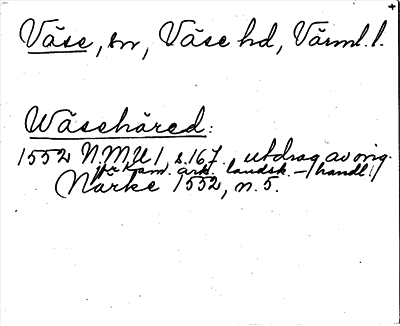 Väse, sn, Väse hd, Värml. l.
Wäsehäred:
1552 N.M.U 1, s. 167. utdrag av orig.
i Kam. ark. landsk. – handl.
Närke 1552, n. 5.